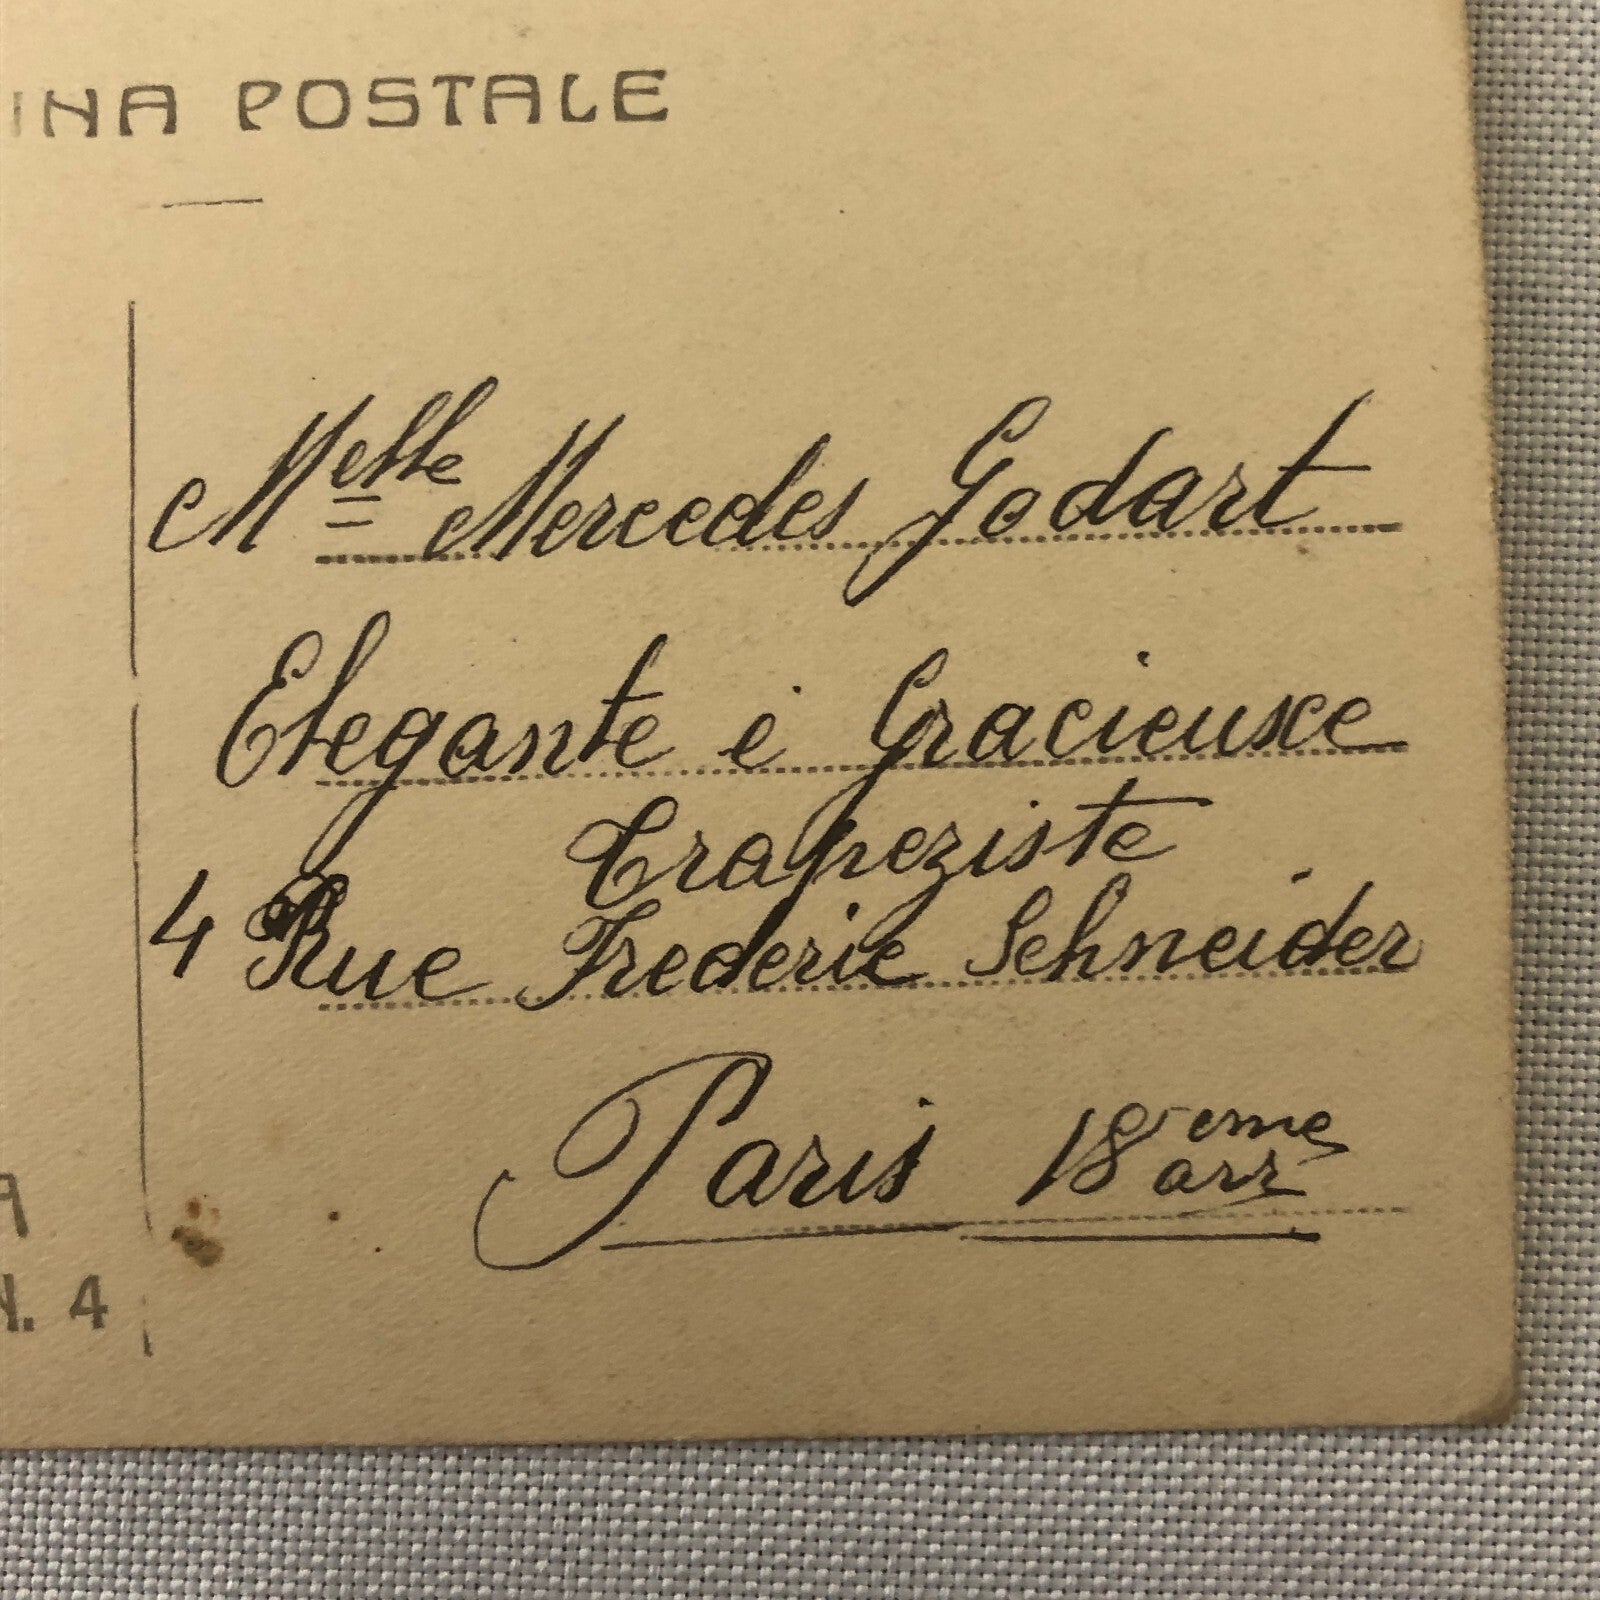 INA POSTALE
Melle Mercedes Godart
Elegante é Gracieuse
Trapeziste
4 Rue Frederic Schneider
Paris 18eme arr
9
N. 4